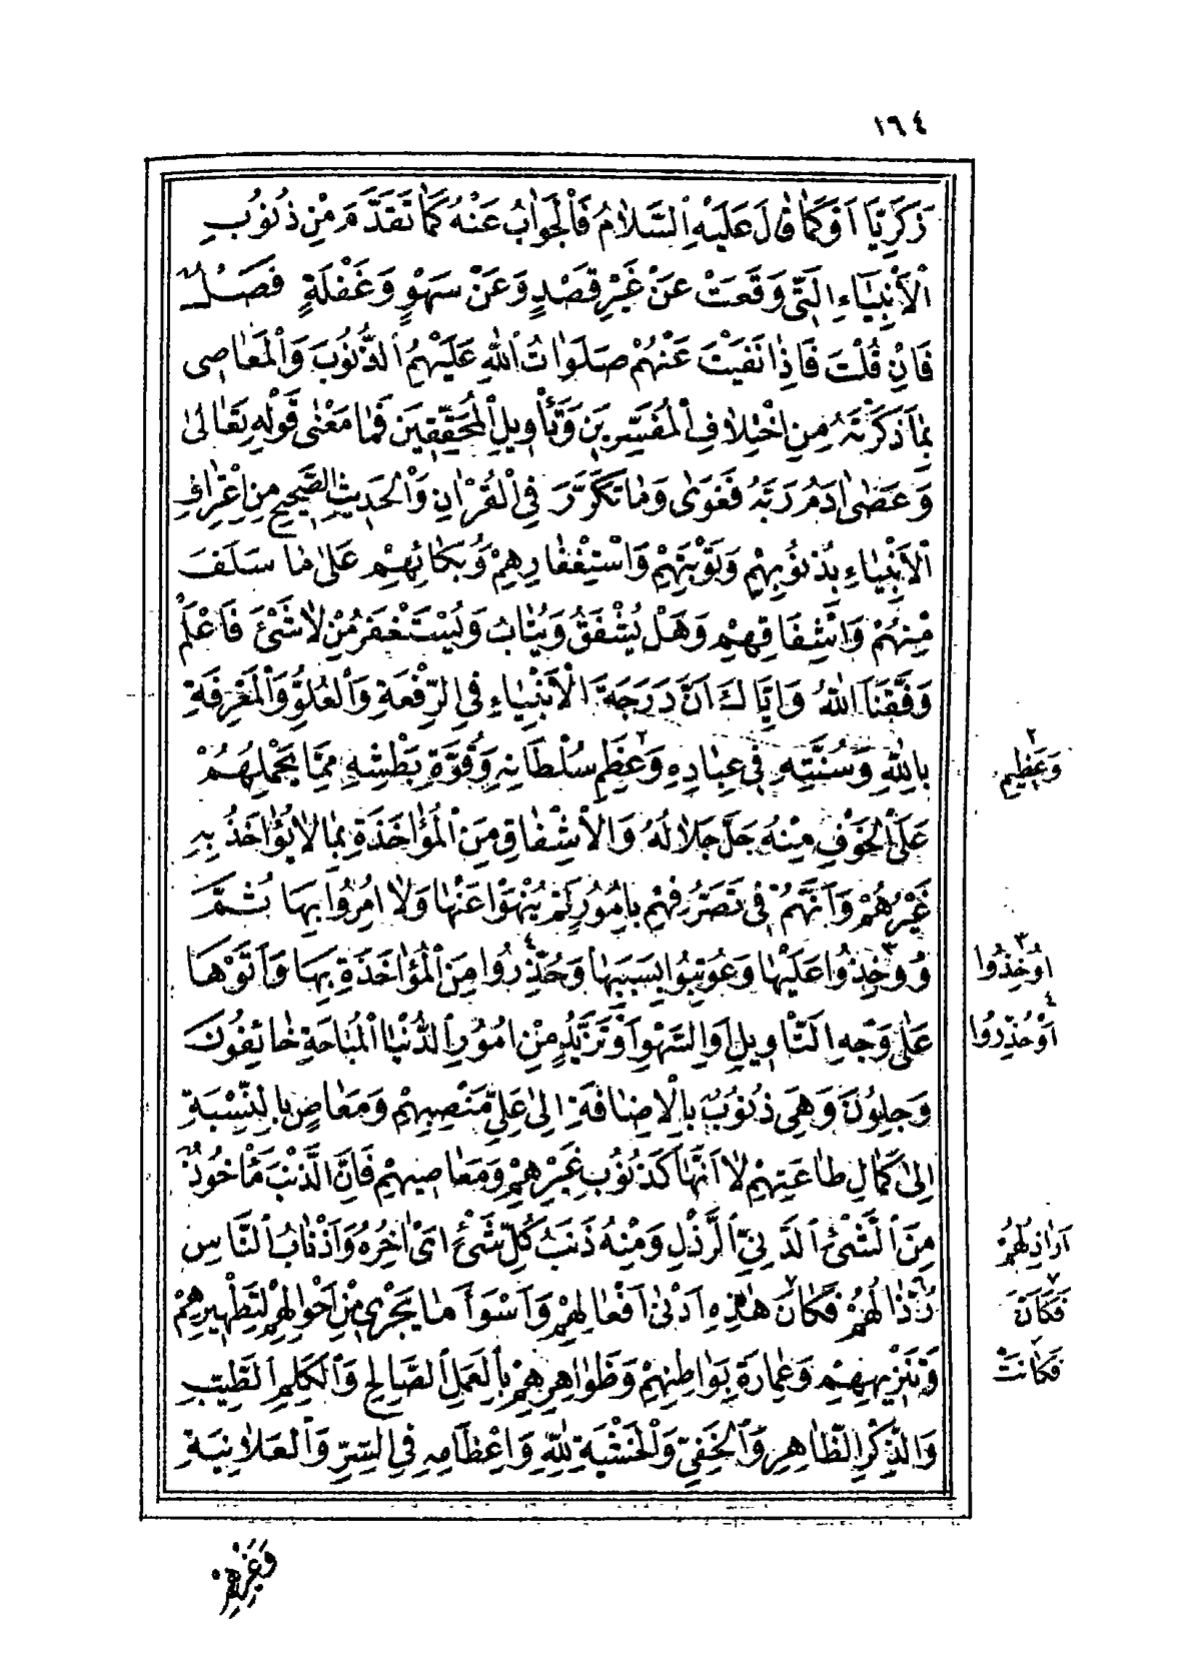 ١٦٤
زَكَرِيَّا اَوْ كَمَا قَالَ عَلَيْهِ السَّلَامُ فَالْجَوَابُ عَنْهُ كَمَا تَقَدَّمَ مِنْ ذُنُوْبِ
الْاَنْبِيَاءِ الَّتِى وَقَعَتْ عَنْ غَيْرِ قَصْدٍ وَعَنْ سَهْوٍ وَغَفْلَةٍ فَصْلٌ
فَاِنْ قُلْتَ فَاِذَا نَفَيْتَ عَنْهُمْ صَلَوَاتُ اللهِ عَلَيْهِمُ الذُّنُوْبَ وَالْمَعَاصِى
بِمَا ذَكَرْتَهُ مِنِ اخْتِلَافِ الْمُفَسِّرِيْنَ وَتَأْوِيْلِ الْمُحَقِّقِيْنَ فَمَا مَعْنٰى قَوْلِهِ تَعَالٰى
وَعَصٰى اٰدَمُ رَبَّهُ فَغَوٰى وَمَا تَكَرَّرَ فِى الْقُرْاٰنِ وَالْحَدِيْثِ الصَّحِيْحِ مِنِ اعْتِرَافِ
الْاَنْبِيَاءِ بِذُنُوْبِهِمْ وَتَوْبَتِهِمْ وَاسْتِغْفَارِهِمْ وَبُكَائِهِمْ عَلٰى مَا سَلَفَ
مِنْهُمْ وَاِشْفَاقِهِمْ وَهَلْ يُشْفَقُ وَيُتَابُ وَيُسْتَغْفَرُ مِنْ لَاشَىْءَ فَاعْلَمْ
وَفَّقَنَا اللهُ وَاِيَّاكَ اَنَّ دَرَجَةَ الْاَنْبِيَاءِ فِى الرِّفْعَةِ وَالْعُلُوِّ وَالْمَعْرِفَةِ
بِاللهِ وَسُنَّتِهِ فِى عِبَادِهِ وَعِظَمِ ٢ سُلْطَانِهِ وَقُوَّةِ بَطْشِهِ مِمَّا يَحْمِلُهُمْ
عَلَى الْخَوْفِ مِنْهُ جَلَّ جَلَالُهُ وَالْاِشْفَاقِ مِنَ الْمُؤَاخَذَةِ بِمَا لَا يُؤَاخَذُ بِهِ
غَيْرُهُمْ وَاَنَّهُمْ فِى تَصَرُّفِهِمْ بِاُمُوْرٍ لَمْ يُنْهَوْا عَنْهَا وَلَا اُمِرُوْا بِهَا ثُمَّ
وُوْخِذُوْا ٣ عَلَيْهَا وَعُوْتِبُوْا بِسَبَبِهَا وَحُذِّرُوْا ٤ مِنَ الْمُؤَاخَذَةِ بِهَا وَاَتَوْهَا
عَلٰى وَجْهِ التَّأْوِيْلِ اَوِ السَّهْوِ اَوْ تَزَيُّدٍ مِنْ اُمُوْرِ الدُّنْيَا الْمُبَاحَةِ خَائِفُوْنَ
وَجِلُوْنَ وَهِىَ ذُنُوْبٌ بِالْاِضَافَةِ اِلٰى عَلِىِّ مَنْصِبِهِمْ وَمَعَاصٍ بِالنِّسْبَةِ
اِلٰى كَمَالِ طَاعَتِهِمْ لَا اَنَّهَا كَذُنُوْبِ غَيْرِهِمْ وَمَعَاصِيْهِمْ فَاِنَّ الذَّنْبَ مَأْخُوْذٌ
مِنَ الشَّىْءِ الدَّنِىِّ الرَّذْلِ وَمِنْهُ ذَنَبُ كُلِّ شَىْءٍ اَىْ اٰخِرُهُ وَاَذْنَابُ النَّاسِ
رُذَّالُهُمْ فَكَانَ ٧ هٰذِهِ اَدْنٰى اَفْعَالِهِمْ وَاَسْوَأَ مَا يَجْرِى مِنْ اَحْوَالِهِمْ لِتَطْهِيْرِهِمْ
وَتَنْزِيْهِهِمْ وَعِمَارَةِ بَوَاطِنِهِمْ وَظَوَاهِرِهِمْ بِالْعَمَلِ الصَّالِحِ وَالْكَلِمِ الطَّيِّبِ
وَالذِّكْرِ الظَّاهِرِ وَالْخَفِىِّ وَالْخَشْيَةِ لِلّٰهِ وَاِعْظَامِهِ فِى السِّرِّ وَالْعَلَانِيَةِ
٢
وَعَظِيْمِ
٣
اُوْخِذُوْا
٤
اَوْ حُذِّرُوْا
اَرَاذِلُهُمْ
٧
فَكَاَنَّ
٧
فَكَانَتْ
وَغَيْرِهِمْ